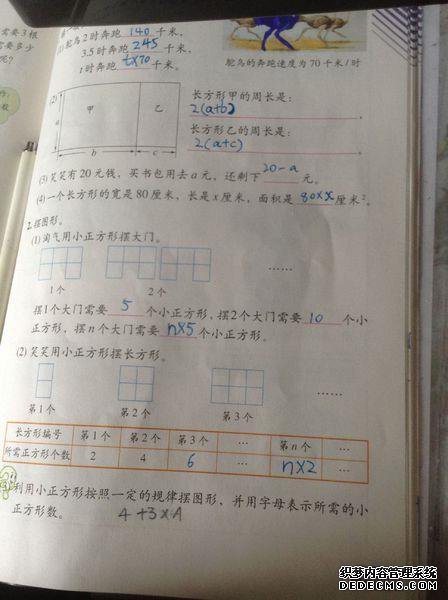 需要3根
需要多少
呢?
鸵鸟2时奔跑 140 千米,
3.5时奔跑 245 千米,
t时奔跑 t×70 千米。
鸵鸟的奔跑速度为70千米/时
(2)
甲
乙
a
b
c
长方形甲的周长是:
2(a+b)。
长方形乙的周长是:
2(a+c)。
(3)笑笑有20元钱,买书包用去a元,还剩下 20-a 元。
(4)一个长方形的宽是80厘米,长是x厘米,面积是 80×x 厘米²。
2.摆图形。
(1)淘气用小正方形摆大门。
……
1个
2个
摆1个大门需要 5 个小正方形,摆2个大门需要 10 个小
正方形,摆n个大门需要 n×5 个小正方形。
(2)笑笑用小正方形摆长方形。
……
第1个
第2个
第3个
长方形编号 第1个 第2个 第3个 … 第n个 …
所需正方形个数 2 4 6 … n×2 …
利用小正方形按照一定的规律摆图形,并用字母表示所需的小
正方形数。 4+3×A
织梦内容管理系统
DEDECMS.COM